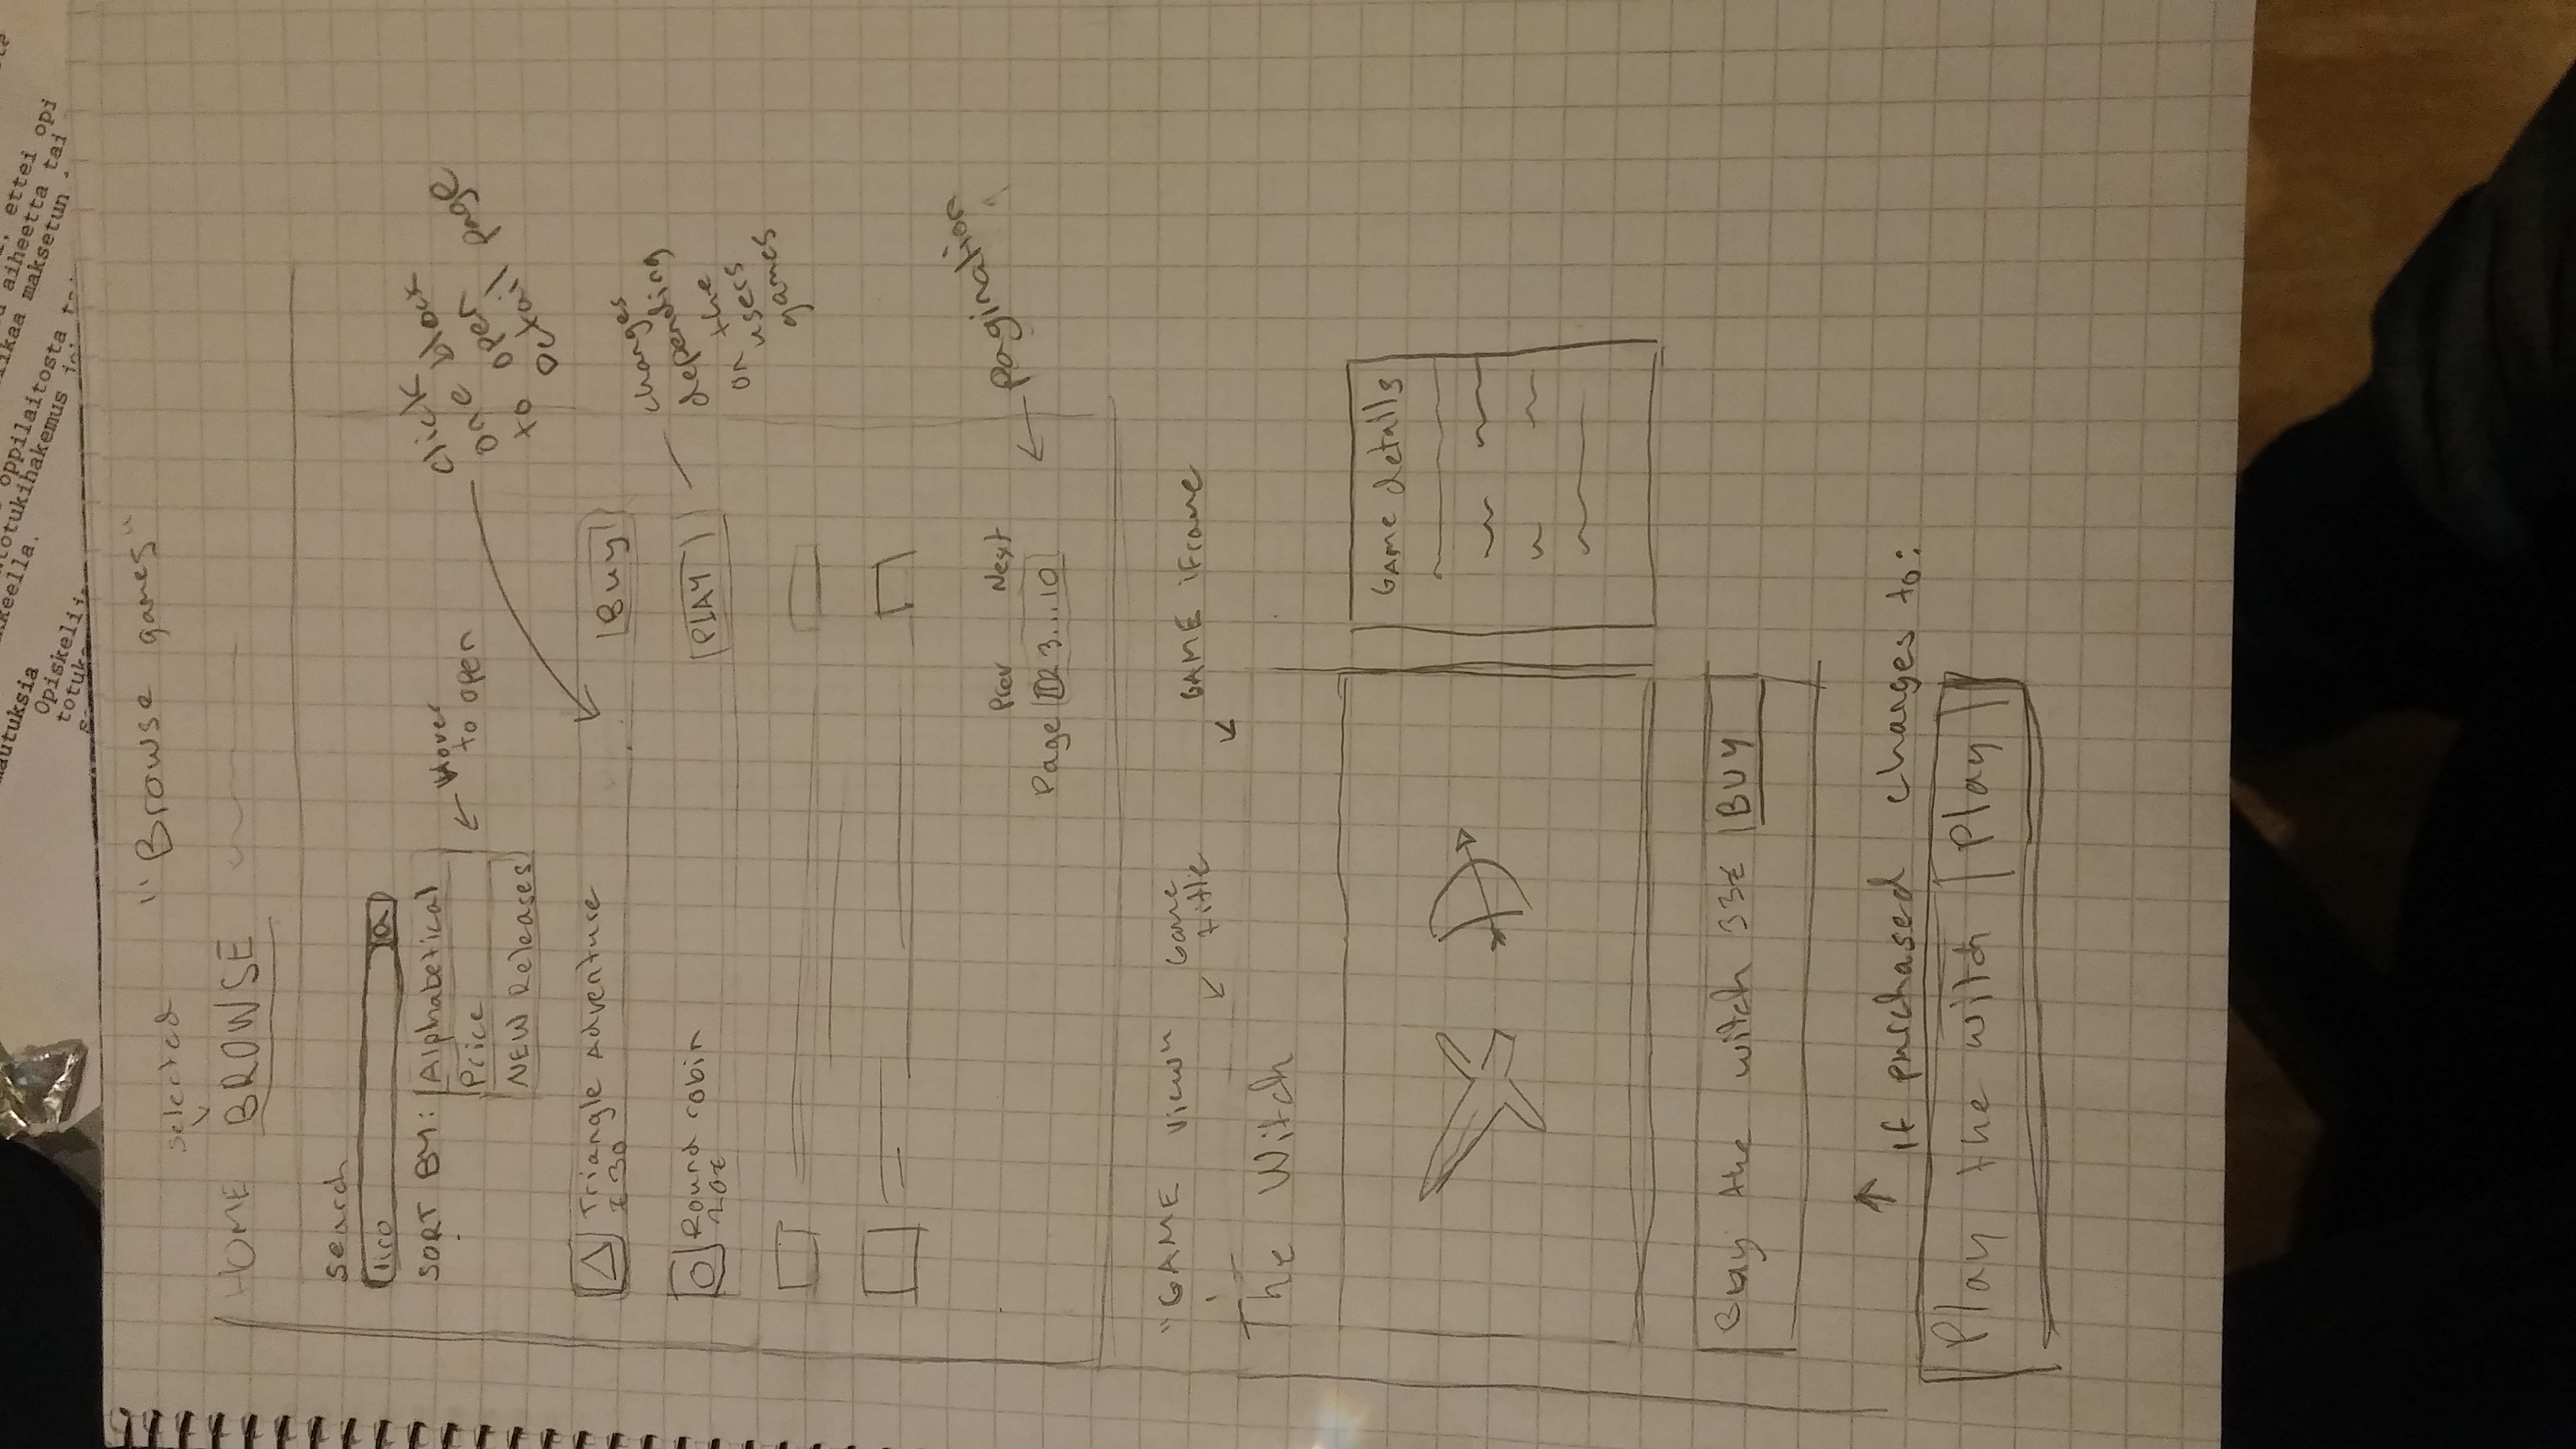 mautuksia
kkeella.
Opiskelij
totuk
oppilaitosta
totukihakemus
ikaa maksetun
aiheetta tai
ettei opi
"Browse games"
selected
HOME BROWSE
search
SORT BY: Alphabetical
Price
NEW Releases
Hover
to open
click
one block
to open
Detail page
Triangle Adventure
£30
Buy
Round robin
20£
PLAY
changes
depending
on the
users
games
Prev Next
Page 1 2 3...10
Pagination
"GAME view"
Game
title
GAME iFrame
The Witch
GAMe details
Buy the witch 33£ BUY
If purchased changes to:
Play the witch Play